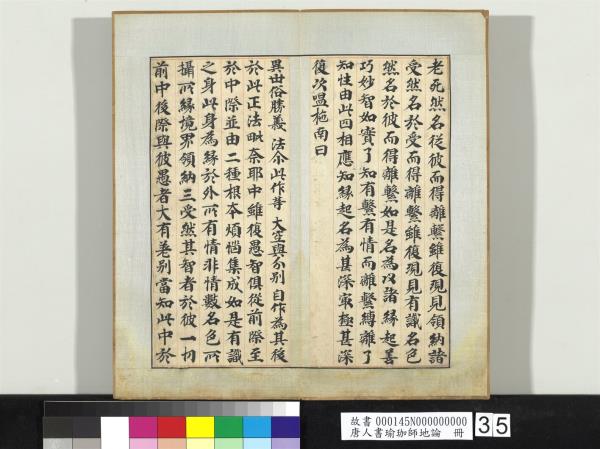 老死然名從彼而得離繫雖復現見領納諸
受然名於受而得離繫雖復現見有識名色
然名於彼而得離繫如是名為以諸緣起善
巧妙智如實了知有繫有情而離繫縛離了
知性由此四相應知緣起名為甚深最極甚深
復次嗢柁南曰
異世俗勝義 法尒此作等 大空與分別 自作為其後
於此正法毗奈耶中雖復愚智俱從前際至
於中際並由二種根本煩惱集成如是有識
之身此身為緣於外所有情非情數名色所
攝所緣境界領納三受然其智者於彼一切
前中後際與彼愚者大有差別當知此中於
故書 000145N000000000
唐人書瑜珈師地論 冊
35